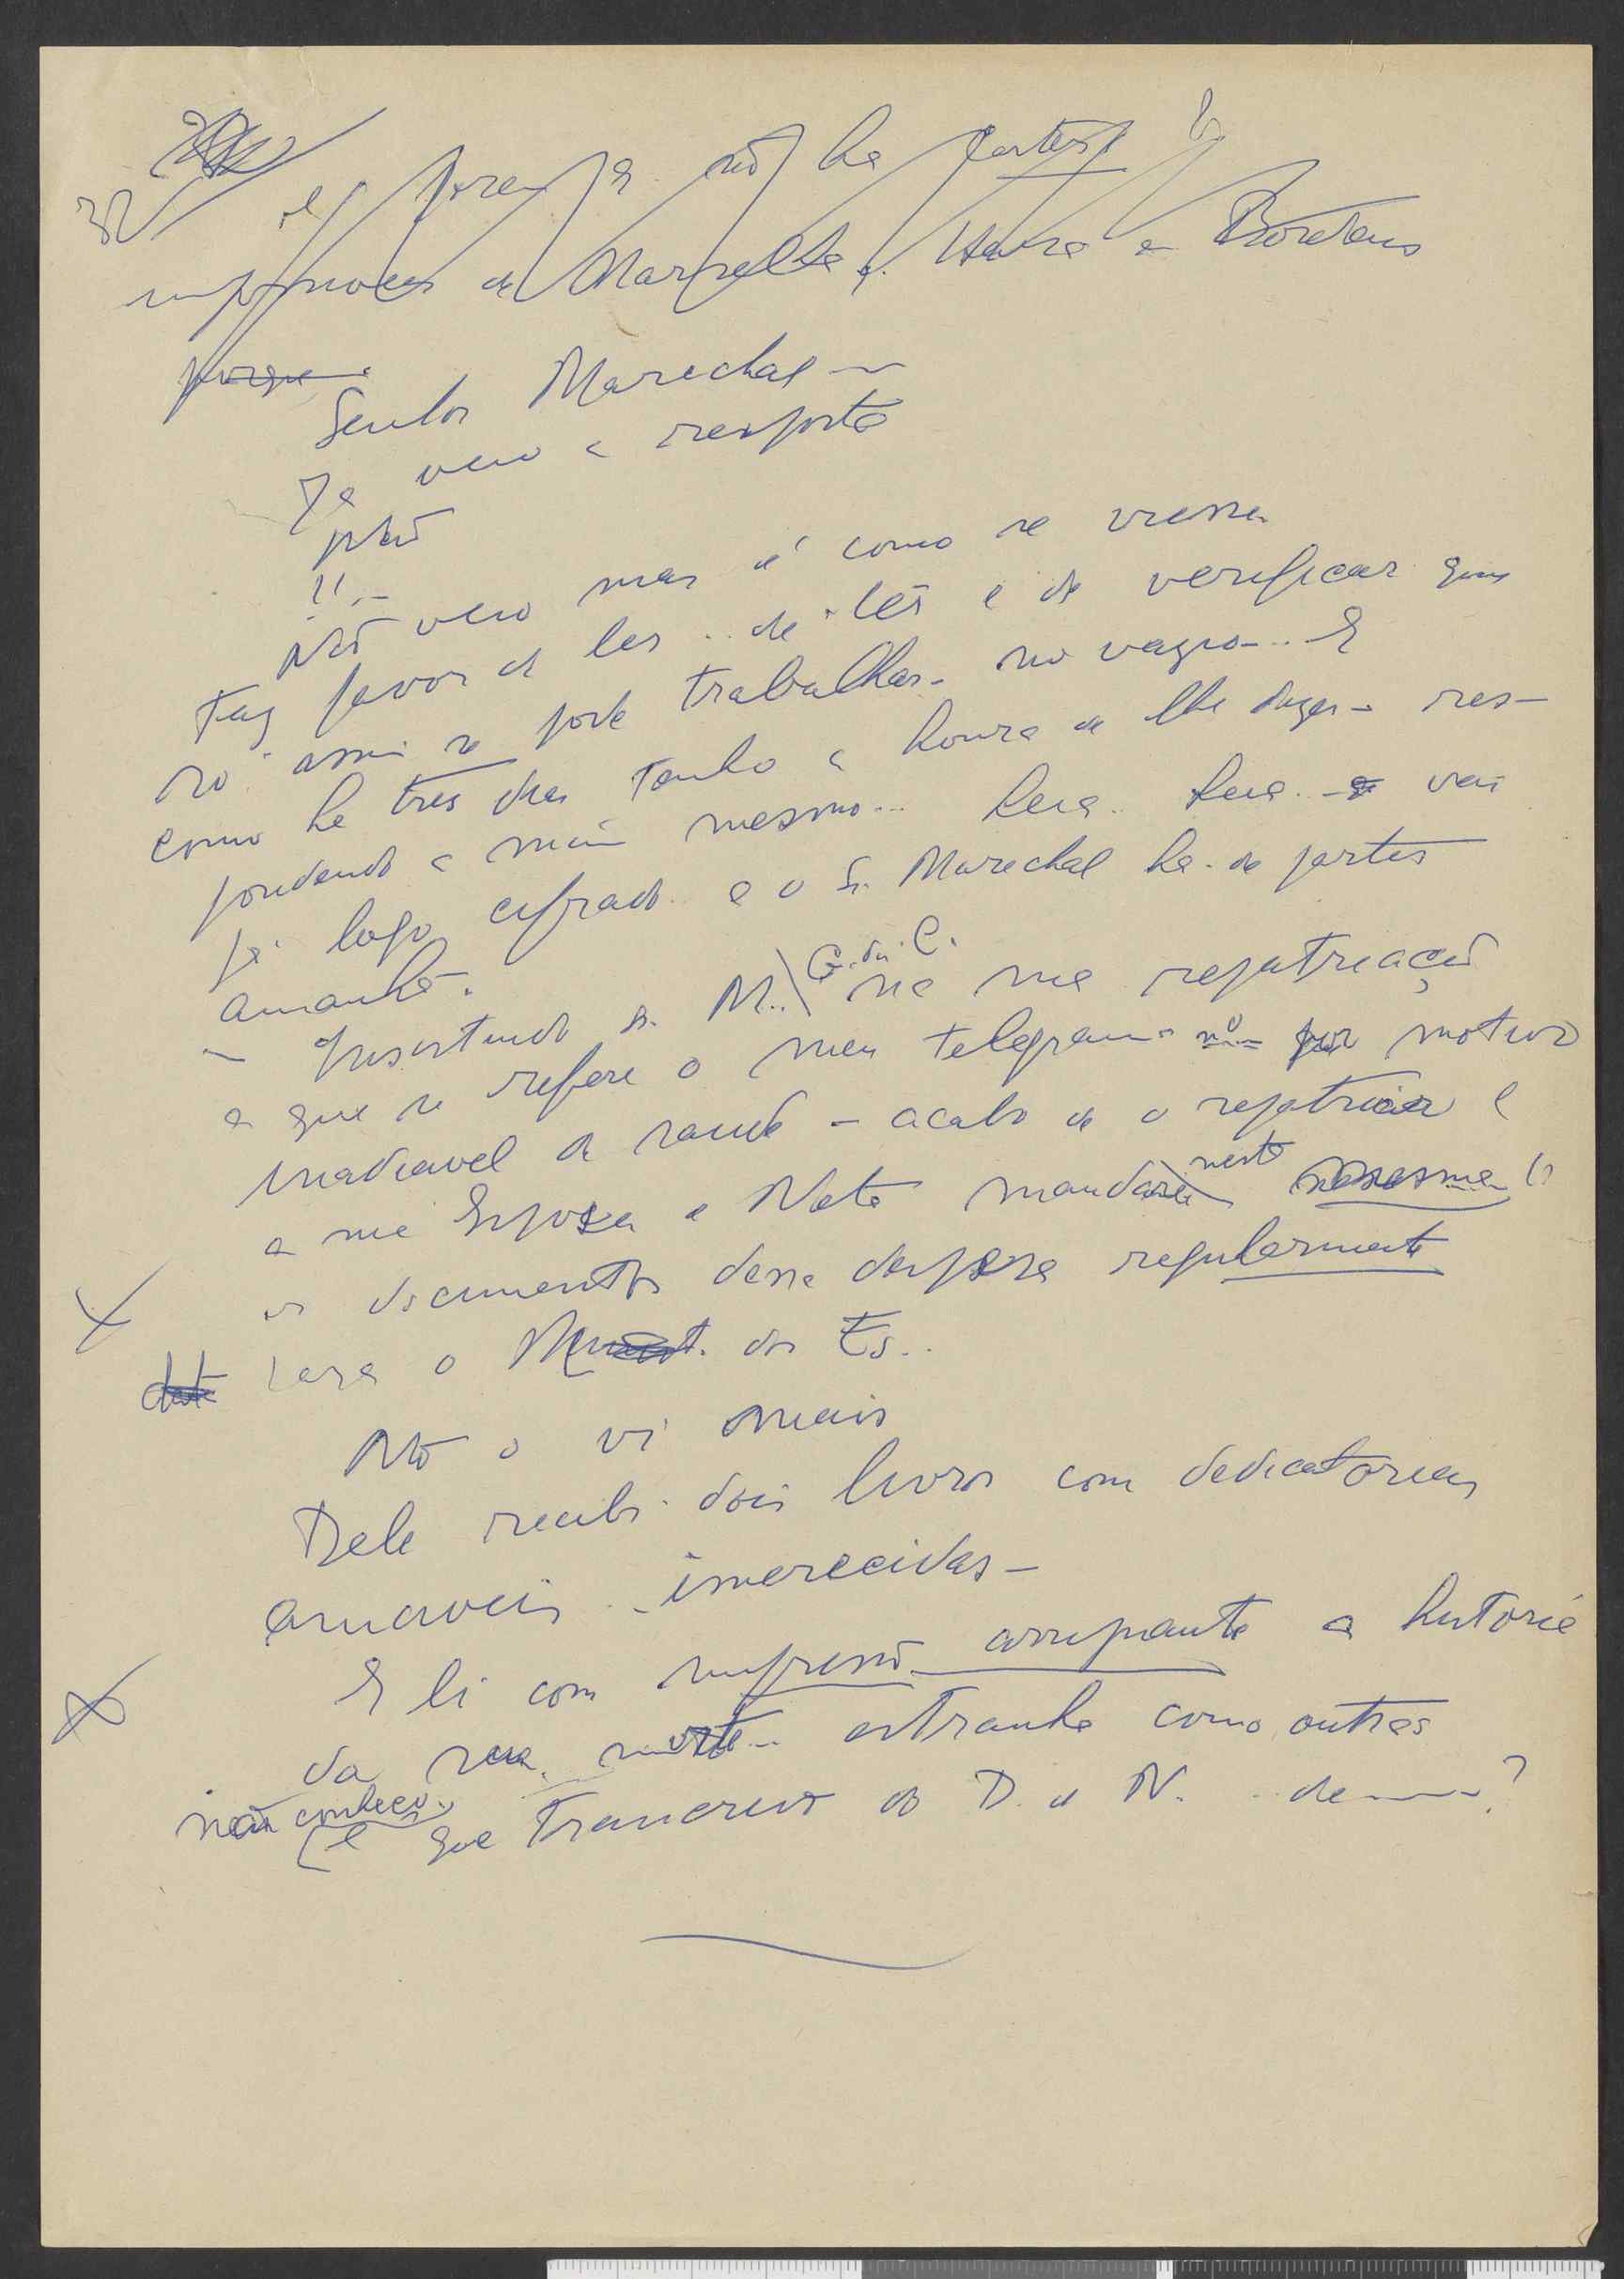 32
e não ha
de Marselha, Havre e Bordeus
porque
Senhor Marechal
Já veio a resposta
Não
!!..
Não veio mas é como se viesse
Faz favor de ler .. de ler e de verificar que
só assim se pode trabalhar no vazio... E
como ha tres dias tenho a honra de lhe dizer – res-
pondendo a mim mesmo... vai
já logo cifrado e o Sr. Marechal ha-de partir
amanhã.
– Insistindo Sr. M.. G. da C. na sua repatriação
a que se refere o meu telegrama nº por motivo
inadiavel de saude – acabo de o repatriar e
a sua Esposa e Neta neste
os documentos dessa despesa regularmente
para o dos Es..
Não o vi mais
Dele recebi dois livros com dedicatorias
amaveis imerecidas –
E li com impressão arrepiante a historia
da sua morte .. estranha como outras
não conheço
(e que transcrevo do D. de N. de ?